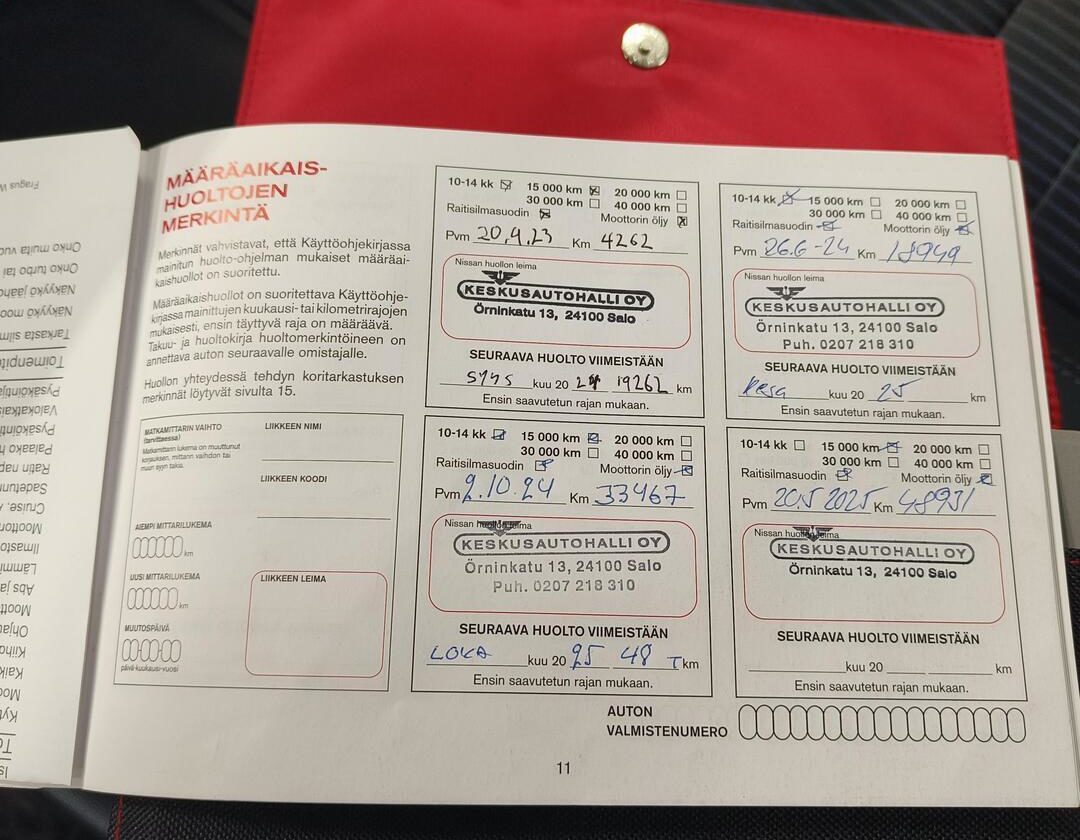 MÄÄRÄAIKAIS-
HUOLTOJEN
MERKINTÄ
Merkinnät vahvistavat, että Käyttöohjekirjassa
mainitun huolto-ohjelman mukaiset määräai-
kaishuollot on suoritettu.
Määräaikaishuollot on suoritettava Käyttöohje-
kirjassa mainittujen kuukausi- tai kilometrirajojen
mukaisesti, ensin täyttyvä raja on määräävä.
Takuu- ja huoltokirja huoltomerkintöineen on
annettava auton seuraavalle omistajalle.
Huollon yhteydessä tehdyn koritarkastuksen
merkinnät löytyvät sivulta 15.
MATKAMITTARIN VAIHTO
(tarvittaessa)
Matkamittarin lukema on muuttunut
korjauksen, mittarin vaihdon tai
muun syyn takia.
AIEMPI MITTARILUKEMA
km
UUSI MITTARILUKEMA
km
MUUTOSPÄIVÄ
päivä-kuukausi-vuosi
LIIKKEEN NIMI
LIIKKEEN KOODI
LIIKKEEN LEIMA
10-14 kk 15 000 km 20 000 km
30 000 km 40 000 km
Raitisilmasuodin Moottorin öljy
Pvm 20.4.23 Km 4262
Nissan huollon leima
KESKUSAUTOHALLI OY
Örninkatu 13, 24100 Salo
SEURAAVA HUOLTO VIIMEISTÄÄN
SYYS kuu 20 24 19262 km
Ensin saavutetun rajan mukaan.
10-14 kk 15 000 km 20 000 km
30 000 km 40 000 km
Raitisilmasuodin Moottorin öljy
Pvm 26.6-24 Km 18949
Nissan huollon leima
KESKUSAUTOHALLI OY
Örninkatu 13, 24100 Salo
Puh. 0207 218 310
SEURAAVA HUOLTO VIIMEISTÄÄN
Kesä kuu 20 25 km
Ensin saavutetun rajan mukaan.
10-14 kk 15 000 km 20 000 km
30 000 km 40 000 km
Raitisilmasuodin Moottorin öljy
Pvm 2.10.24 Km 33467
Nissan huollon leima
KESKUSAUTOHALLI OY
Örninkatu 13, 24100 Salo
Puh. 0207 218 310
SEURAAVA HUOLTO VIIMEISTÄÄN
LOKA kuu 20 25 48 T km
Ensin saavutetun rajan mukaan.
10-14 kk 15 000 km 20 000 km
30 000 km 40 000 km
Raitisilmasuodin Moottorin öljy
Pvm 20.5 2025 Km 48931
Nissan huollon leima
KESKUSAUTOHALLI OY
Örninkatu 13, 24100 Salo
SEURAAVA HUOLTO VIIMEISTÄÄN
kuu 20 km
Ensin saavutetun rajan mukaan.
AUTON
VALMISTENUMERO
11